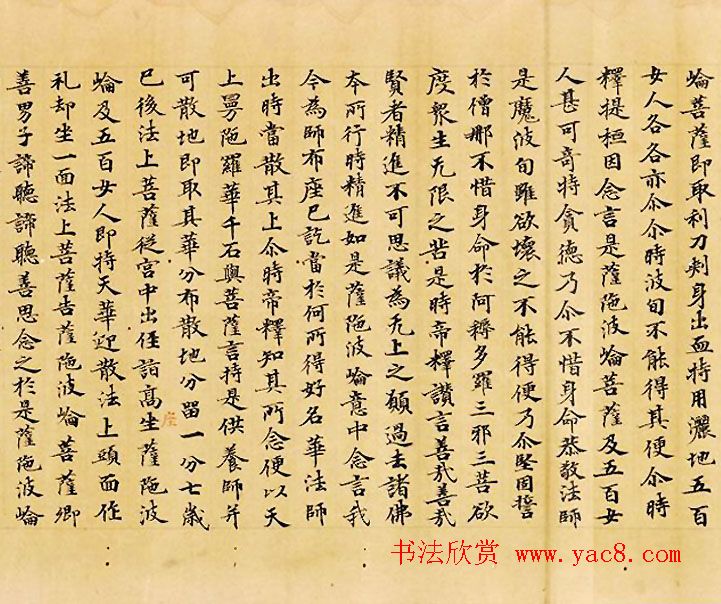 崘菩薩即取利刀刺身出血持用灑地五百
女人各各亦尒尒時波旬不能得其便尒時
釋提桓因念言是薩陁波崘菩薩及五百女
人甚可奇特貪德乃尒不惜身命恭敬法師
是魔波旬雖欲壞之不能得便乃尒堅固誓
於僧那不惜身命於阿耨多羅三耶三菩欲
度衆生无限之苦是時帝釋讃言善哉善哉
賢者精進不可思議為无上之願過去諸佛
本所行時精進如是薩陁波崘意中念言我
今為師布座已訖當於何所得好名華法師
出時當散其上尒時帝釋知其所念便以天
上曼陁羅華千石與菩薩言持是供養師并
可散地即取其華分布散地分留一分七歲
已後法上菩薩従宮中出往詣高坐薩陁波
座
崘及五百女人即持天華迎散法上頭面作
礼却坐一面法上菩薩告薩陁波崘菩薩卿
善男子諦聽諦聽善思念之於是薩陁波崘
书法欣赏 www.yac8.com